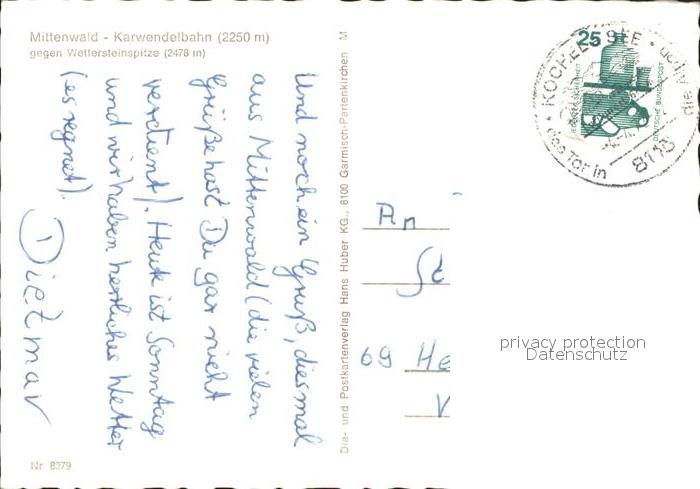 Mittenwald - Karwendelbahn (2250 m)
gegen Wettersteinspitze (2478 m)
Und noch ein Gruß, diesmal
aus Mittenwald (die vielen
Grüße hast Du gar nicht
verdient). Heute ist Sonntag
und wir haben herrliches Wetter
(es regnet).
Dietmar
Nr. 8379
Dia- und Postkartenverlag Hans Huber KG., 8100 Garmisch-Partenkirchen M
25
DEUTSCHE BUNDESPOST
KOCHEL A. SEE
das Tor in
8113
An
69 He
privacy protection
Datenschutz